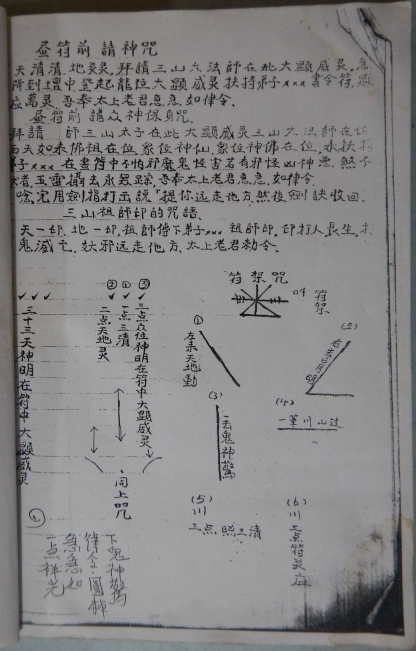 昼符前請神咒
天清清,地灵灵,拜請三山六法師在此大顕威灵,急
降到壇中登起龍位大顕威灵扶持弟子xxx書令符,
应萬灵,吾奉太上老君急急如律令.
昼符前請众神誅身咒.
拜請 師三山太子在此大顕威灵三山六法師在位
西天如来佛祖在位,衆位神仙,衆位神佛在位,扶持
弟子xxx在畫符中不怕邪魔鬼怪害若有邪怪凶神悪煞
玉雷攝去永無踪,吾奉太上老君急急如律令.
唸完用劍指打出説"捉你远走他方,然後劍訣收回.
三山祖師印的咒語.
天一印,地一印,祖師傅下弟子xxx.祖師印,印打人長生,
鬼滅亡,妖邪远走他方,太上老君勅令.
符架咒
叫符架
③
三点众位神明在符中大顕威灵
①
一点三清
②
二点天地灵
三十三天神明在符中大顕威灵
同上咒
(1)
左来天地動
(2)
(3)
一去鬼神驚
(4)
一筆川山过
(5)
川
三点照三清
(6)
川三点符灵应
下鬼神驚
律令
急急如
一点祥光